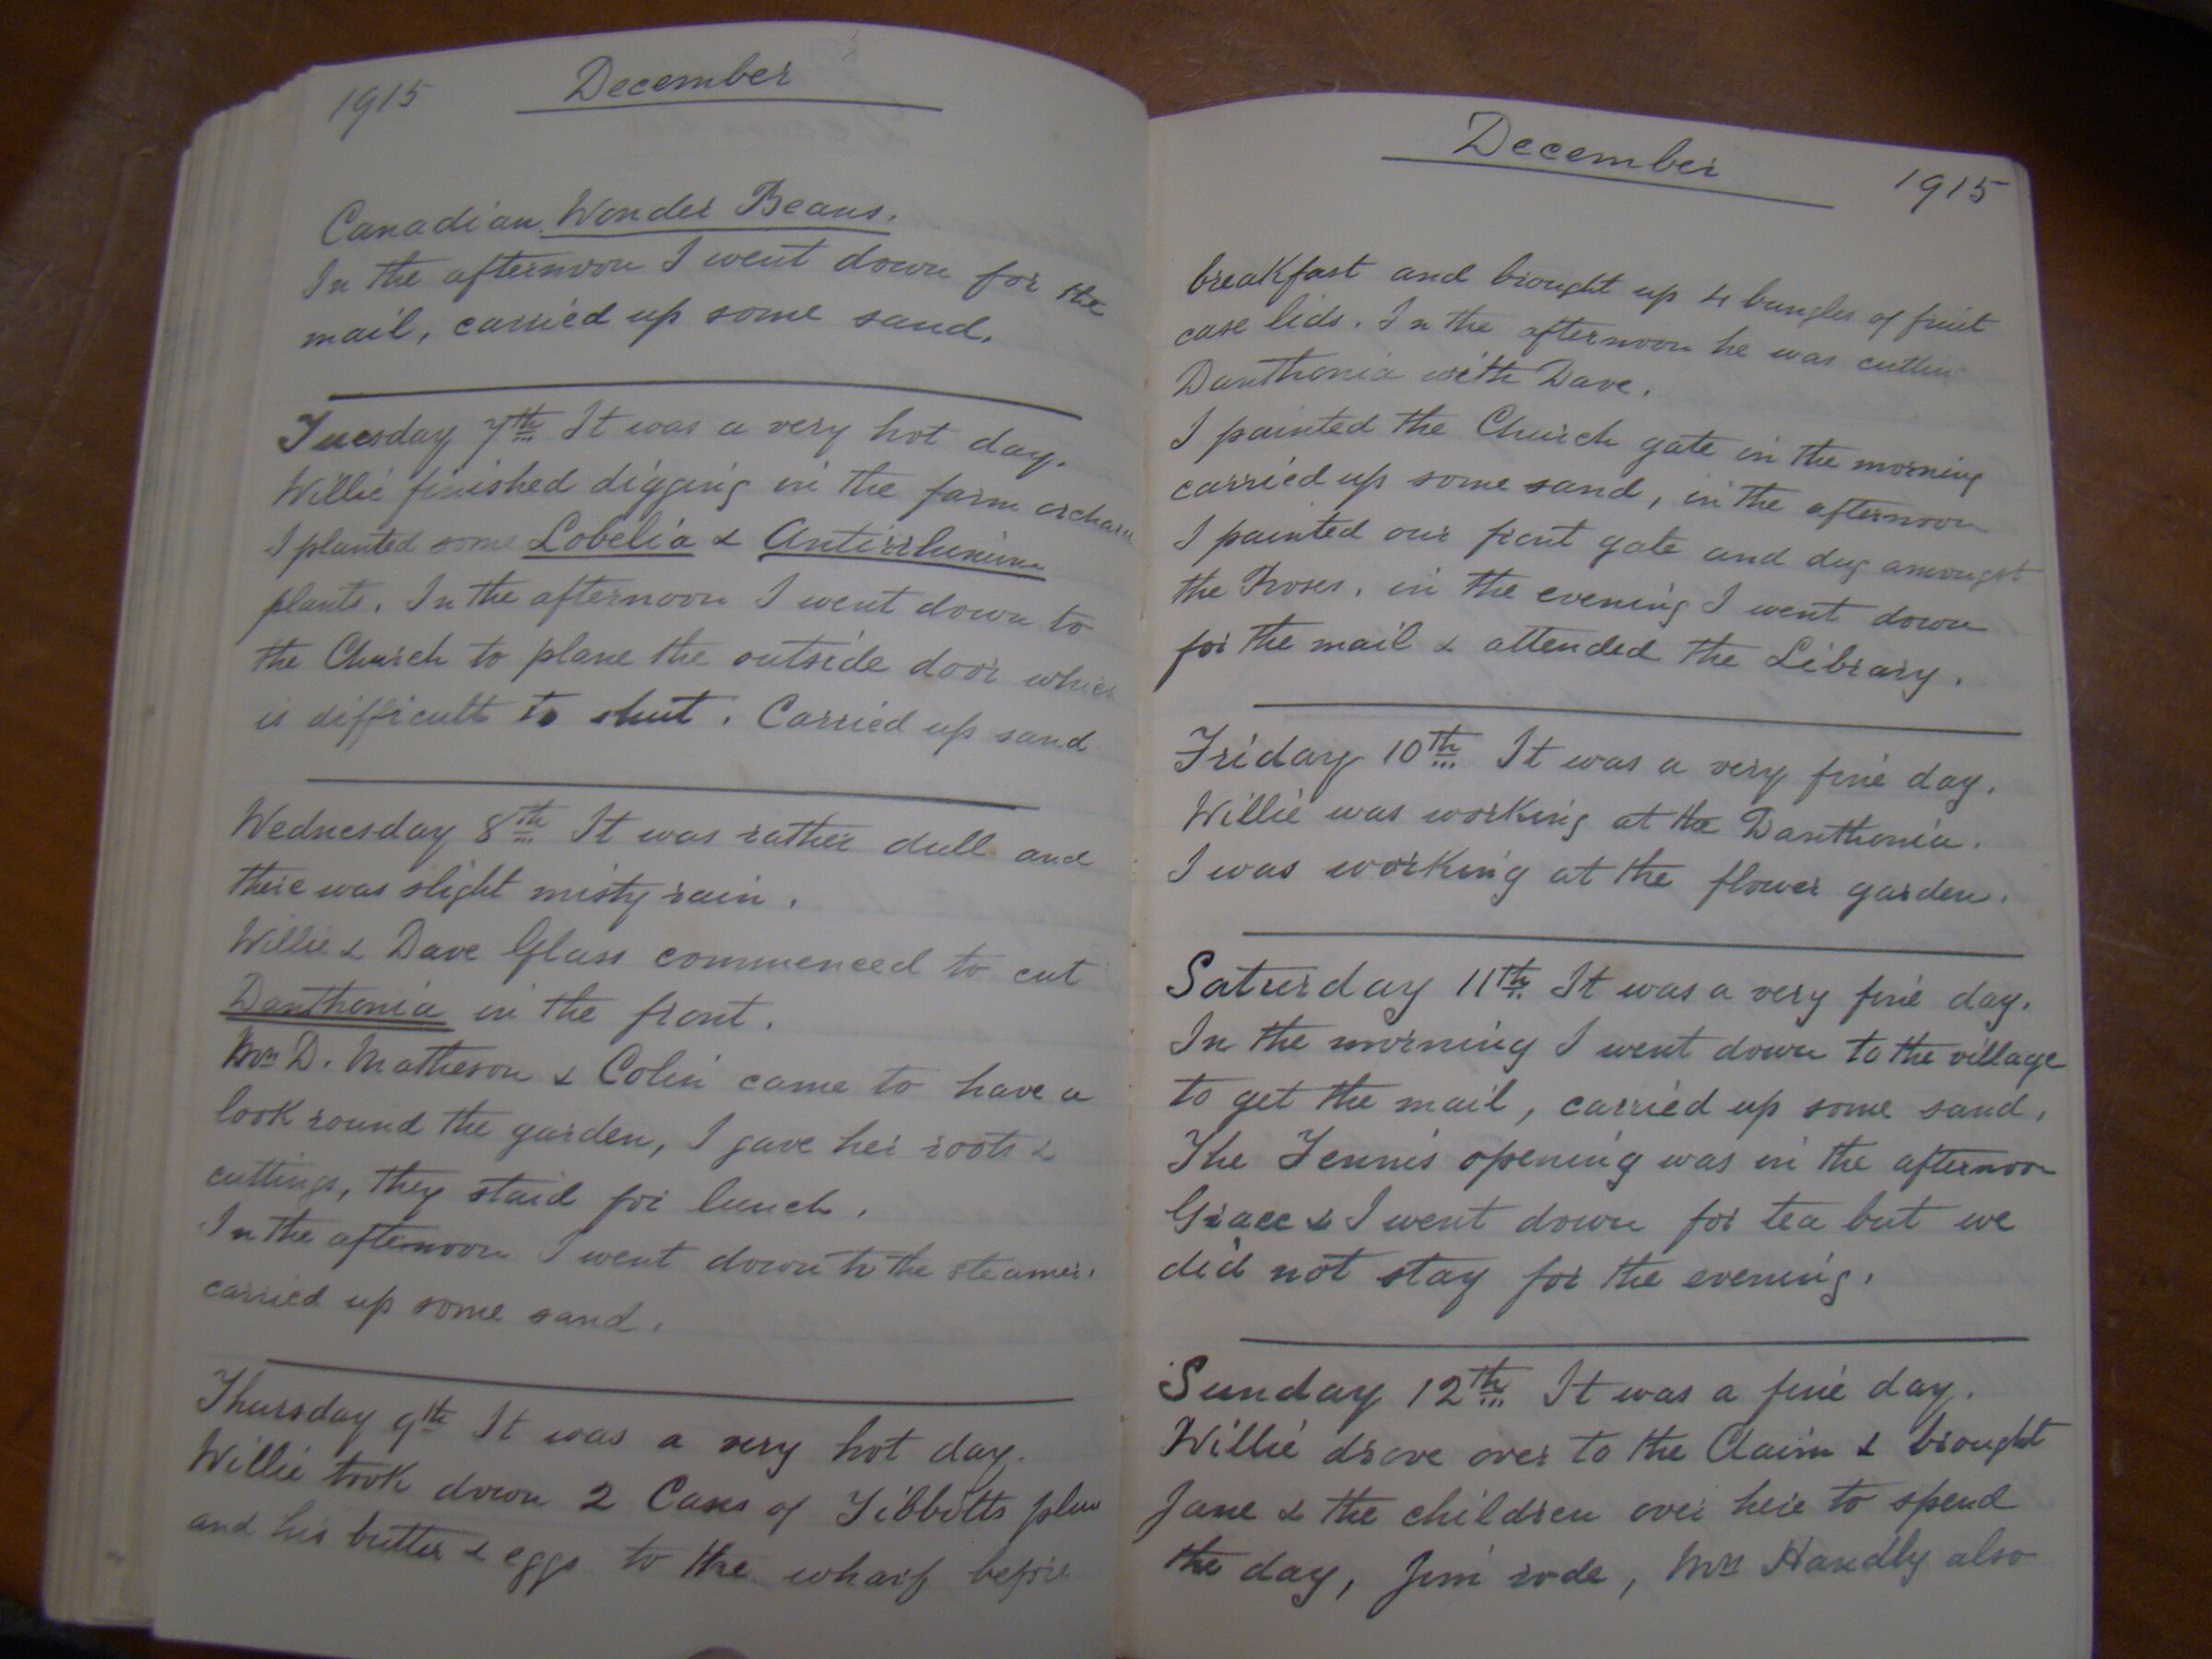 1915 December
Canadian Wonder Beans.
In the afternoon I went down for the
mail, carried up some sand.
Tuesday 7th It was a very hot day.
Willie finished digging in the farm orchard
I planted some Lobelia & Antirrhinum
plants. In the afternoon I went down to
the Church to plane the outside door which
is difficult to shut. Carried up sand
Wednesday 8th It was rather dull and
there was slight misty rain.
Willie & Dave Glass commenced to cut
Danthonia in the front.
Mrs D. Matheson & Colin came to have a
look round the garden, I gave her roots &
cuttings, they staid for lunch.
In the afternoon I went down to the steamer.
carried up some sand.
Thursday 9th It was a very hot day.
Willie took down 2 Cases of Tibbitts plum
and his butter & eggs to the wharf before
December 1915
breakfast and brought up 4 bungles of fruit
case lids. In the afternoon he was cuttin
Danthonia with Dave.
I painted the Church gate in the morning
carried up some sand, in the afternoon
I painted our front gate and dug amongst
the Roses, in the evening I went down
for the mail & attended the Library.
Friday 10th It was a very fine day.
Willie was working at the Danthonia.
I was working at the flower garden.
Saturday 11th It was a very fine day.
In the morning I went down to the village
to get the mail, carried up some sand,
The Tennis opening was in the afternoon
Grace & I went down for tea but we
did not stay for the evening.
Sunday 12th It was a fine day.
Willie drove over to the Claim & brought
Jane & the children over here to spend
the day, Jim rode, Mrs Handly also